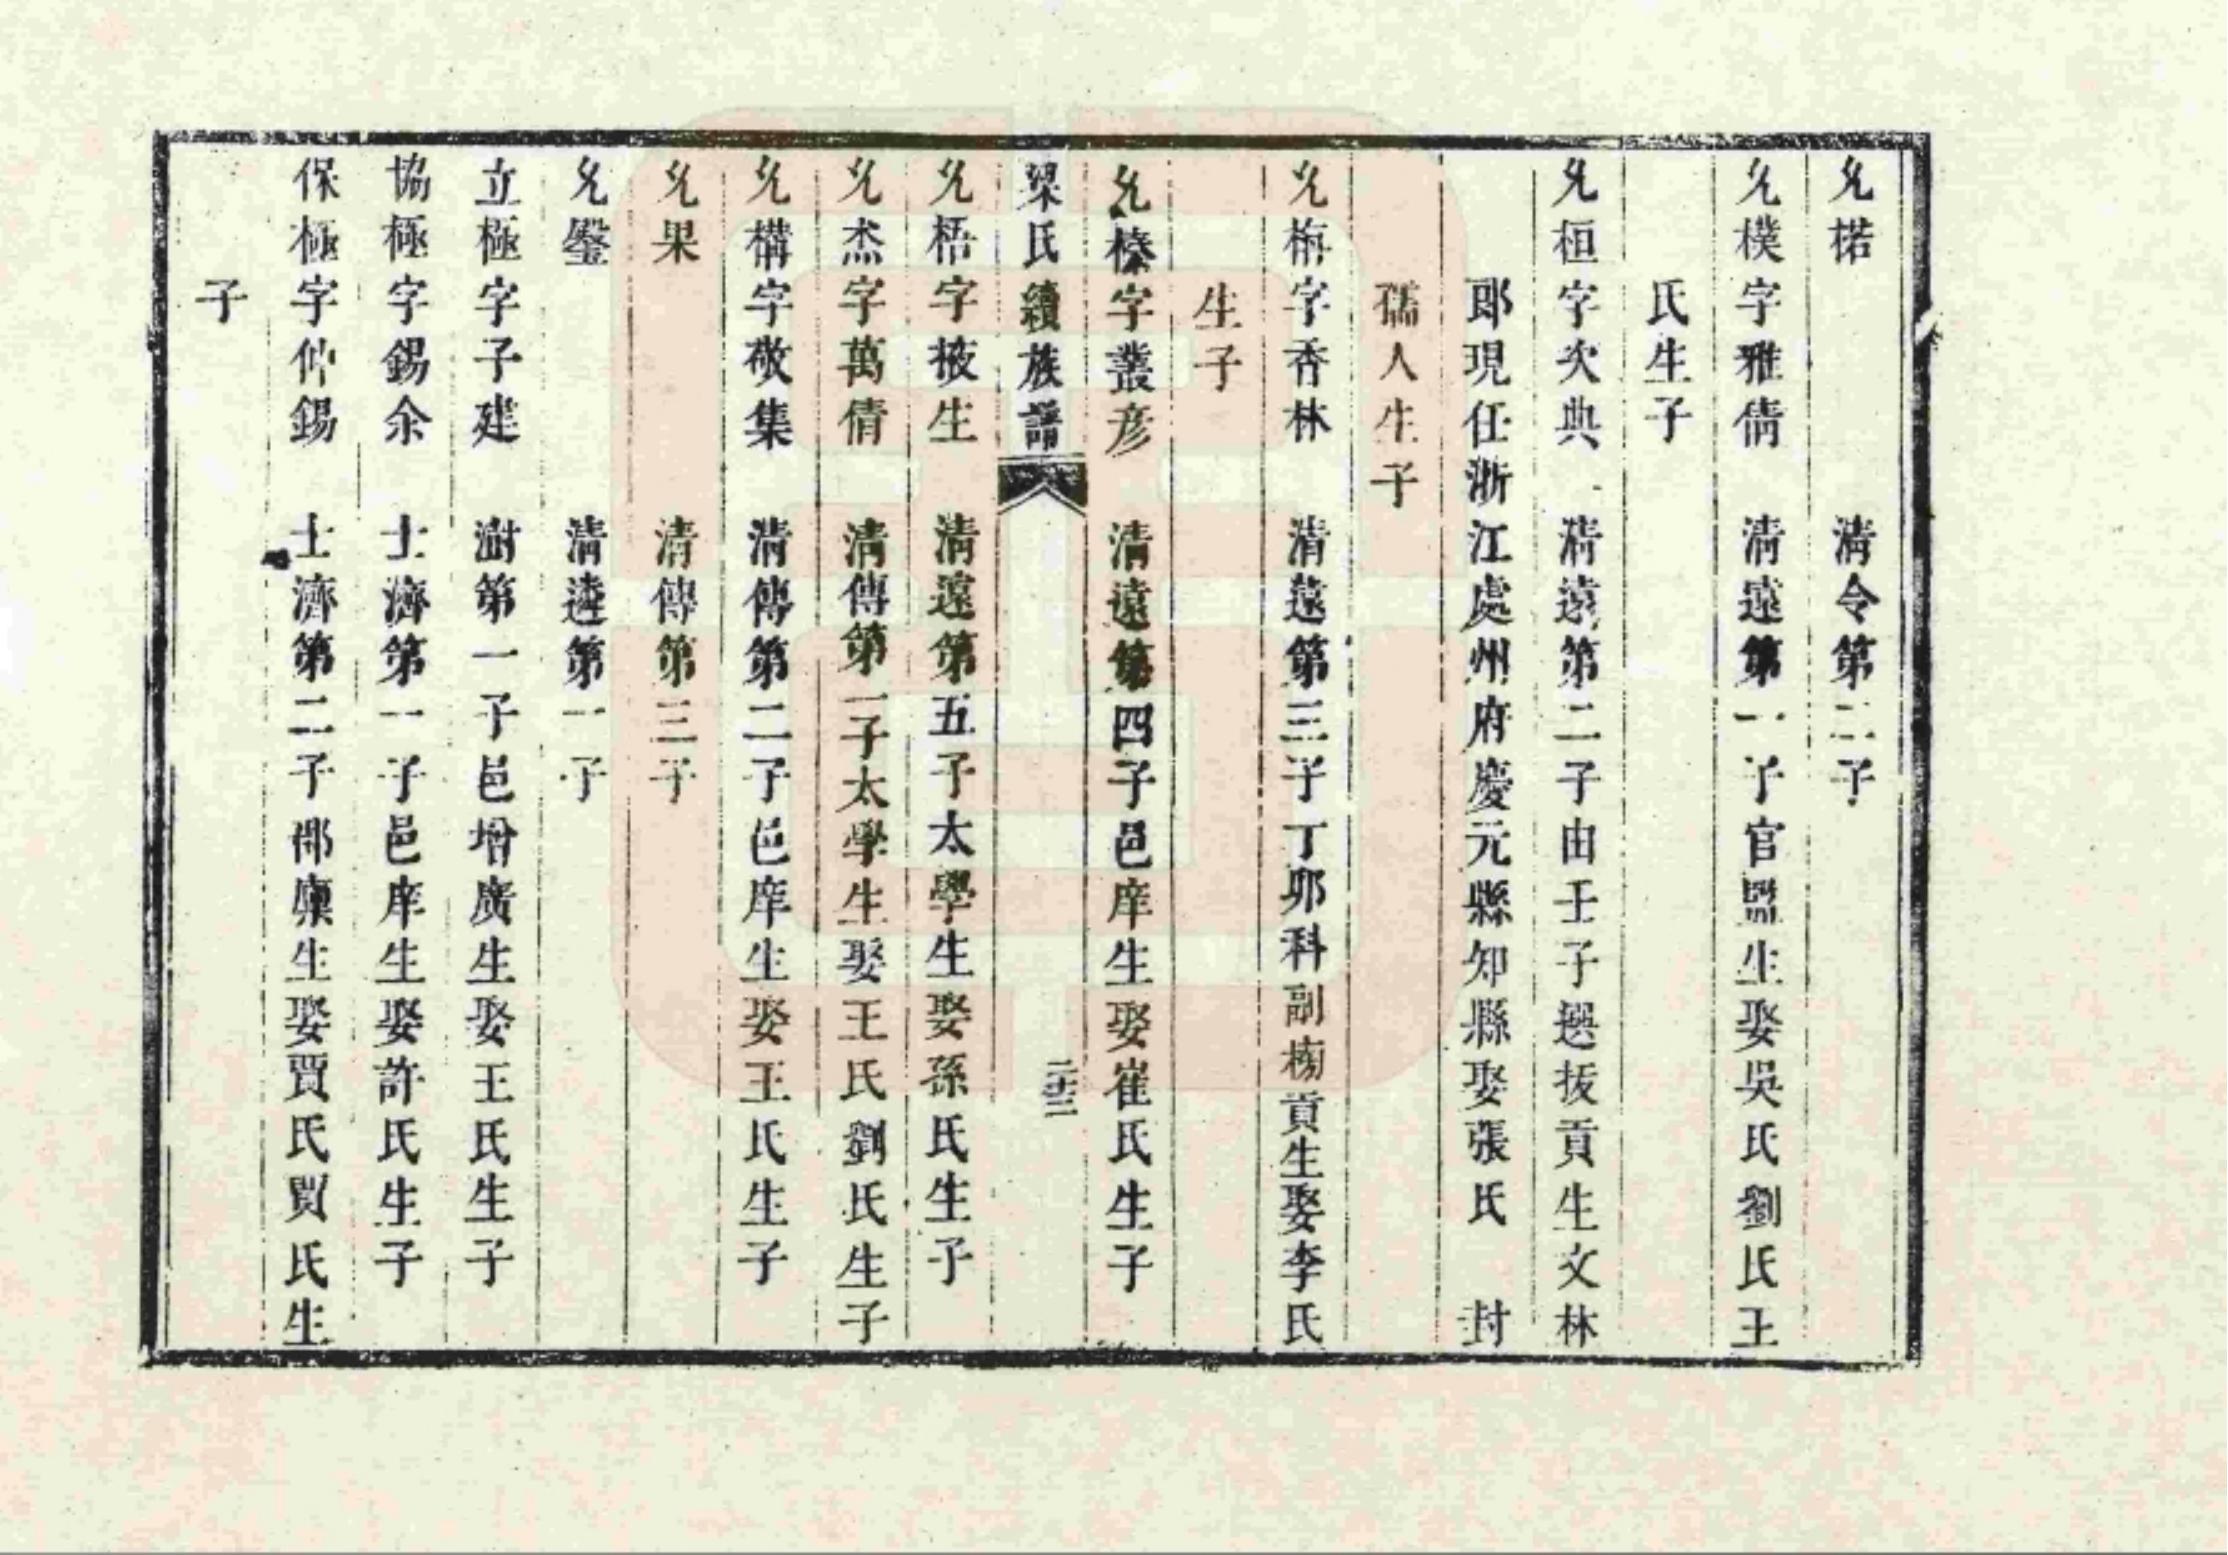 允楉 清令第二子
允樸字雅倩 清遠第一子官監生娶吳氏劉氏王
氏生子
允桓字次典 清遠第二子由壬子選拔貢生文林
郎現任浙江處州府慶元縣知縣娶張氏 封
孺人生子
允栴字香林 清遠第三子丁卯科副榜貢生娶李氏
生子
允榛字叢彦 清遠第四子邑庠生娶崔氏生子
梁氏續族譜
允梧字掖生 清遠第五子太學生娶孫氏生子
允杰字萬倩 清傳第一子太學生娶王氏劉氏生子
允構字敬集 清傳第二子邑庠生娶王氏生子
允果 清傳第三子
允鑿 清遴第一子
立極字子建 澍第一子邑增廣生娶王氏生子
協極字錫余 士濟第一子邑庠生娶許氏生子
保極字仲錫 士濟第二子郡廪生娶賈氏賈氏生
子